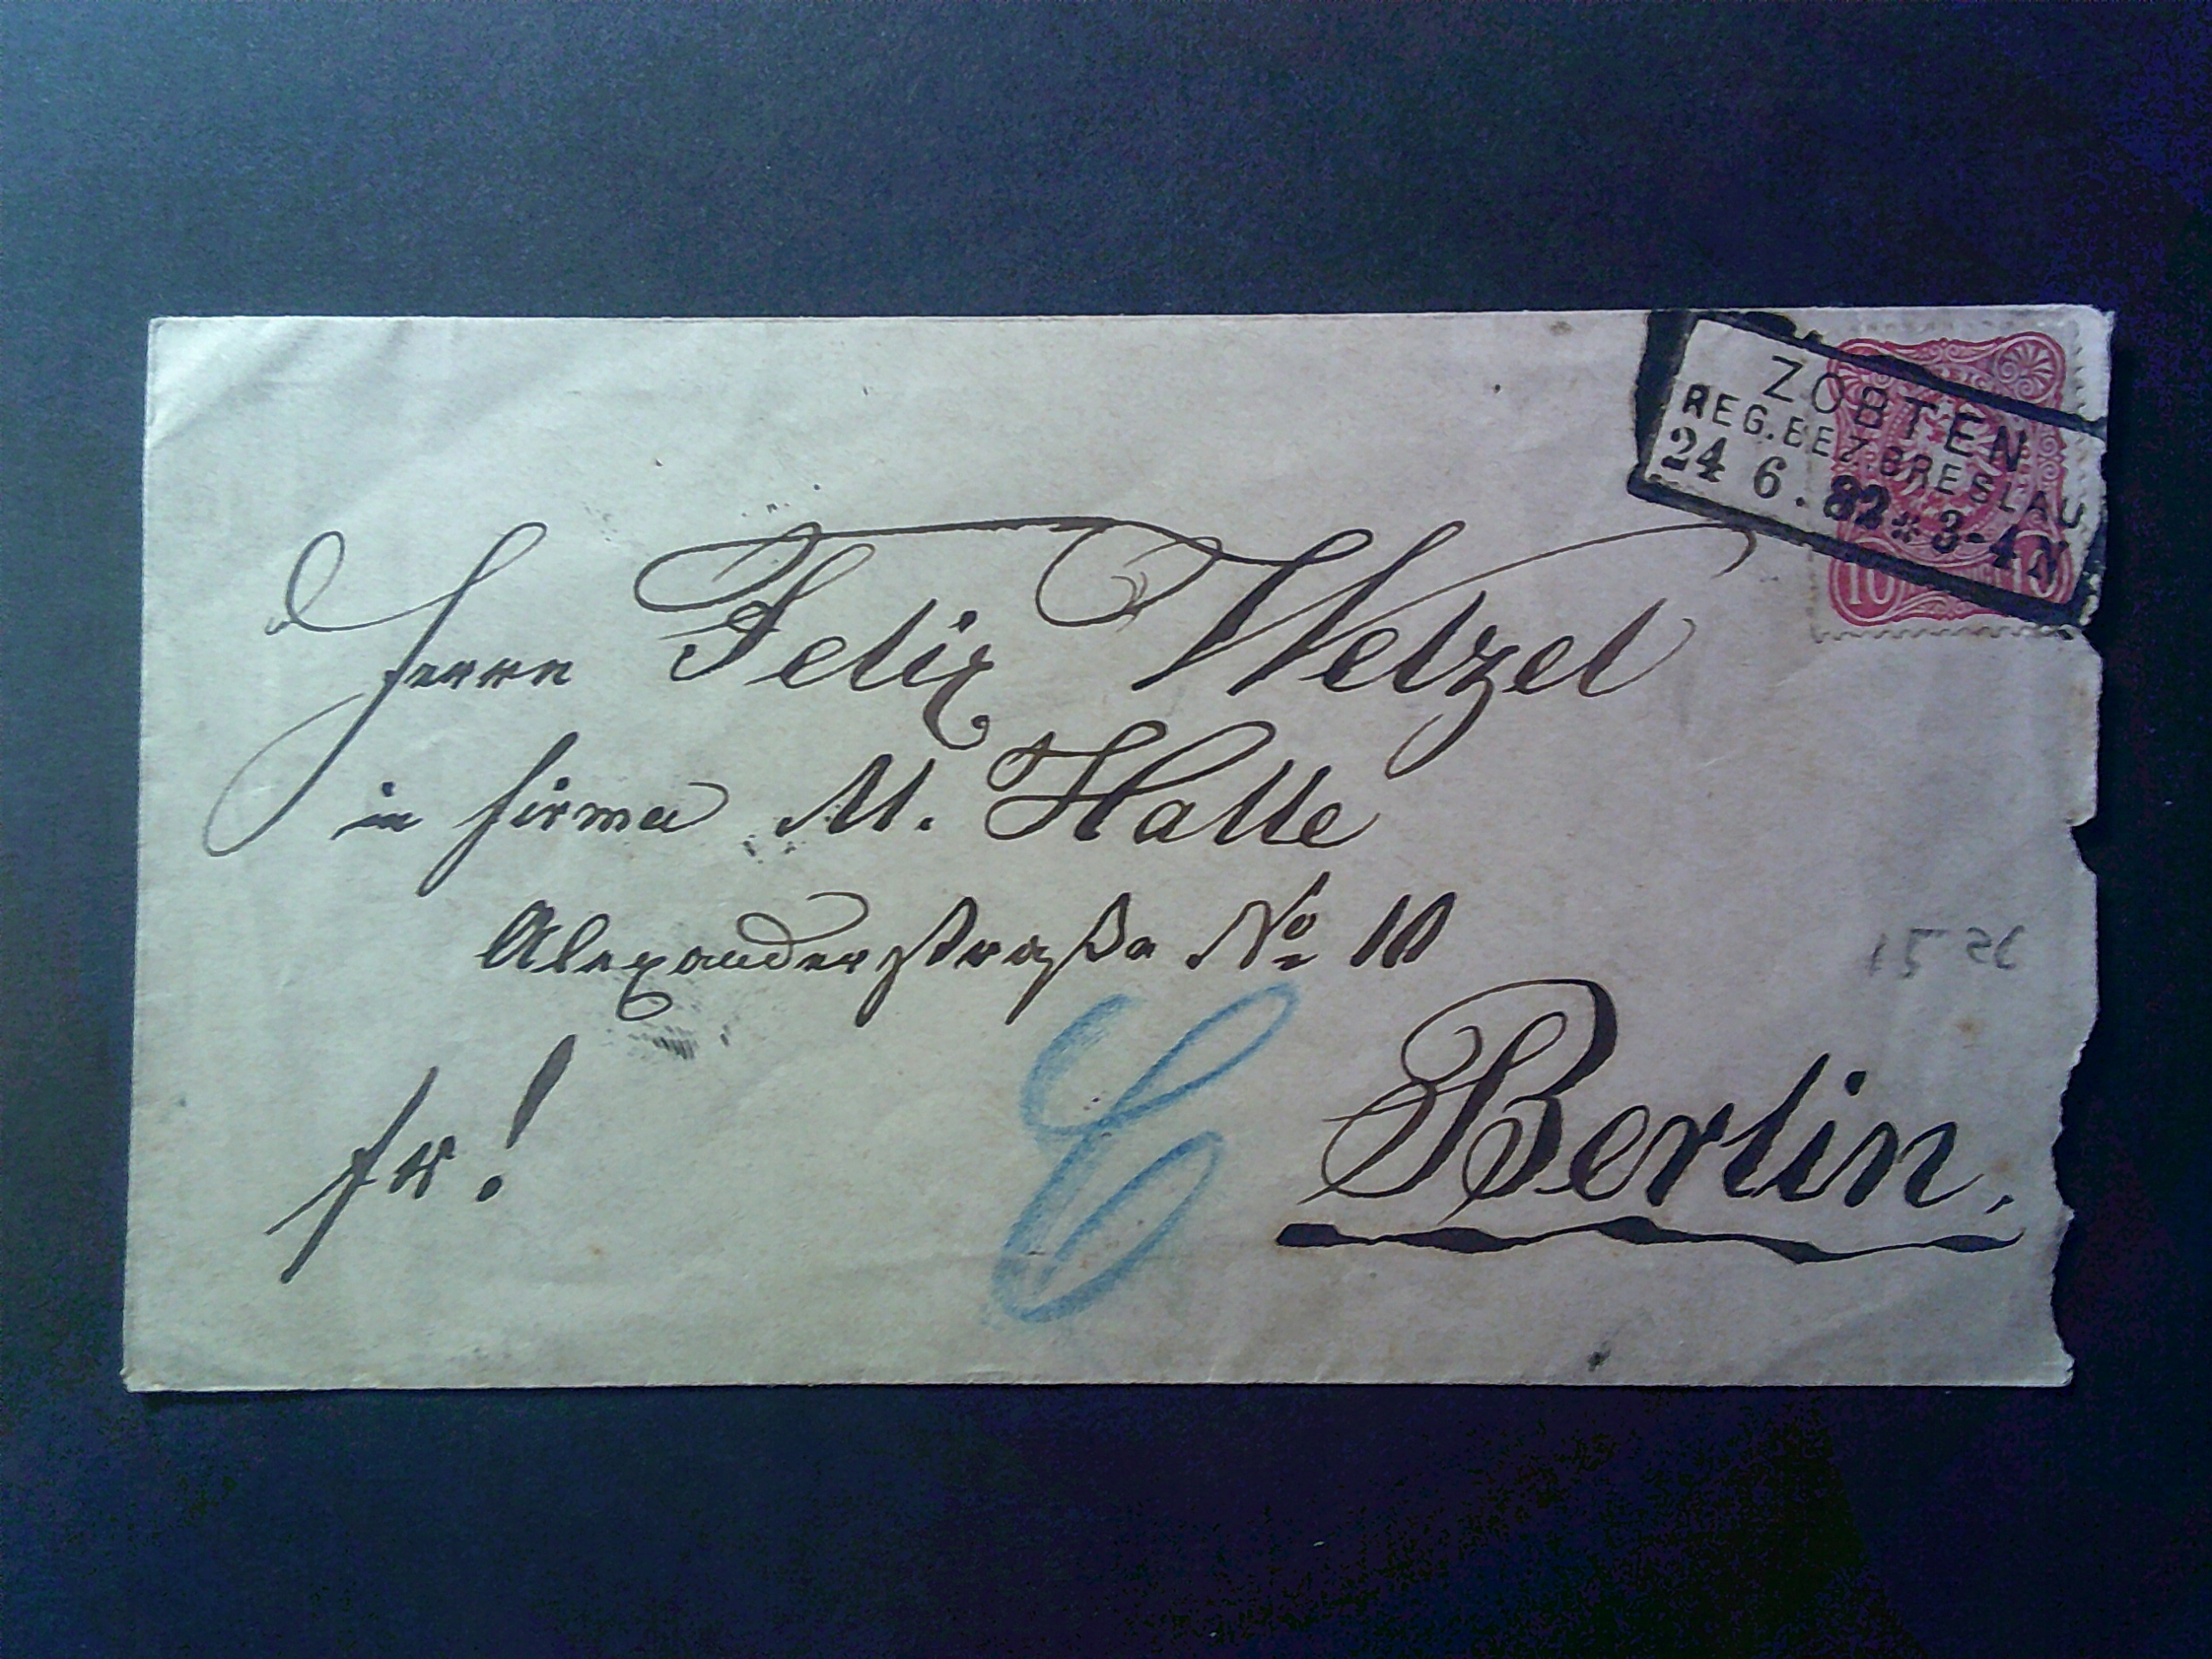 ZOBTEN
REG.BEZ.BRESLAU
24 6. 82 * 3-4 N
10 10
Herrn Felix Welzel
in Firma M. Halle
Alexanderstraße No 10
fr!
C
Berlin.